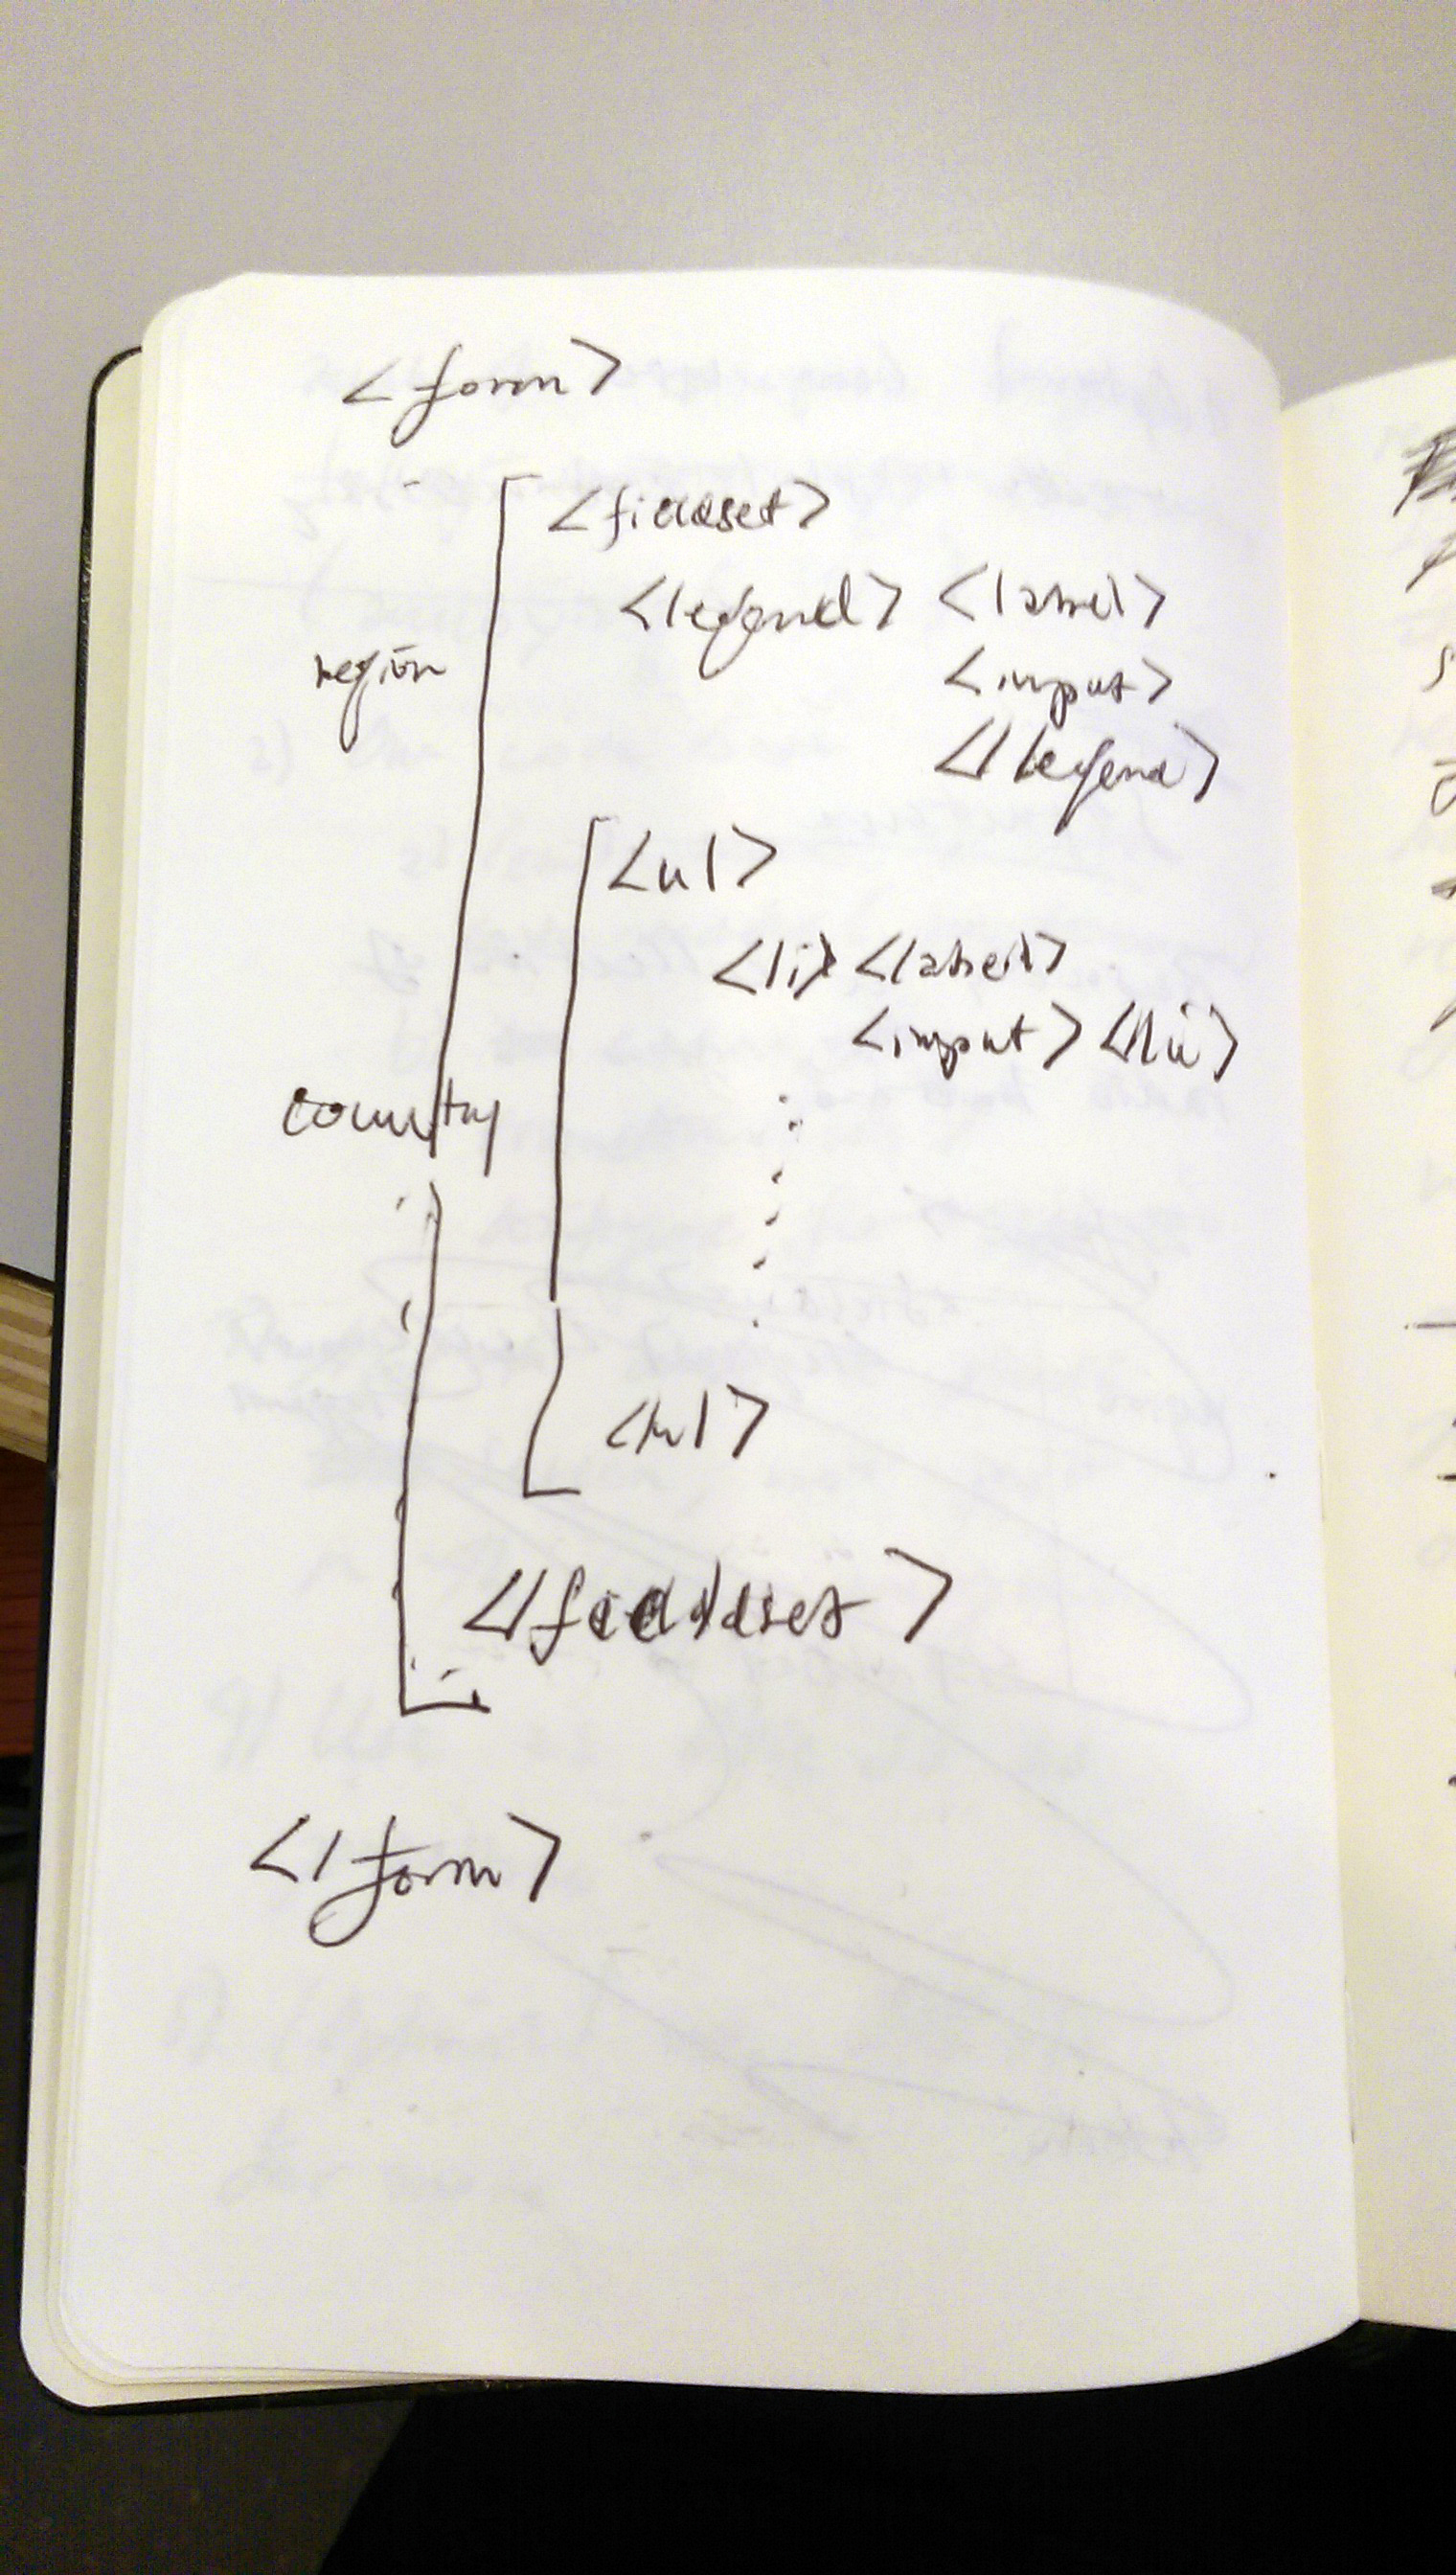 <form>
<fieldset>
<legend> <label>
region
<input>
</legend>
<ul>
<li> <label>
<input> </li>
country
</ul>
</fieldset>
</form>